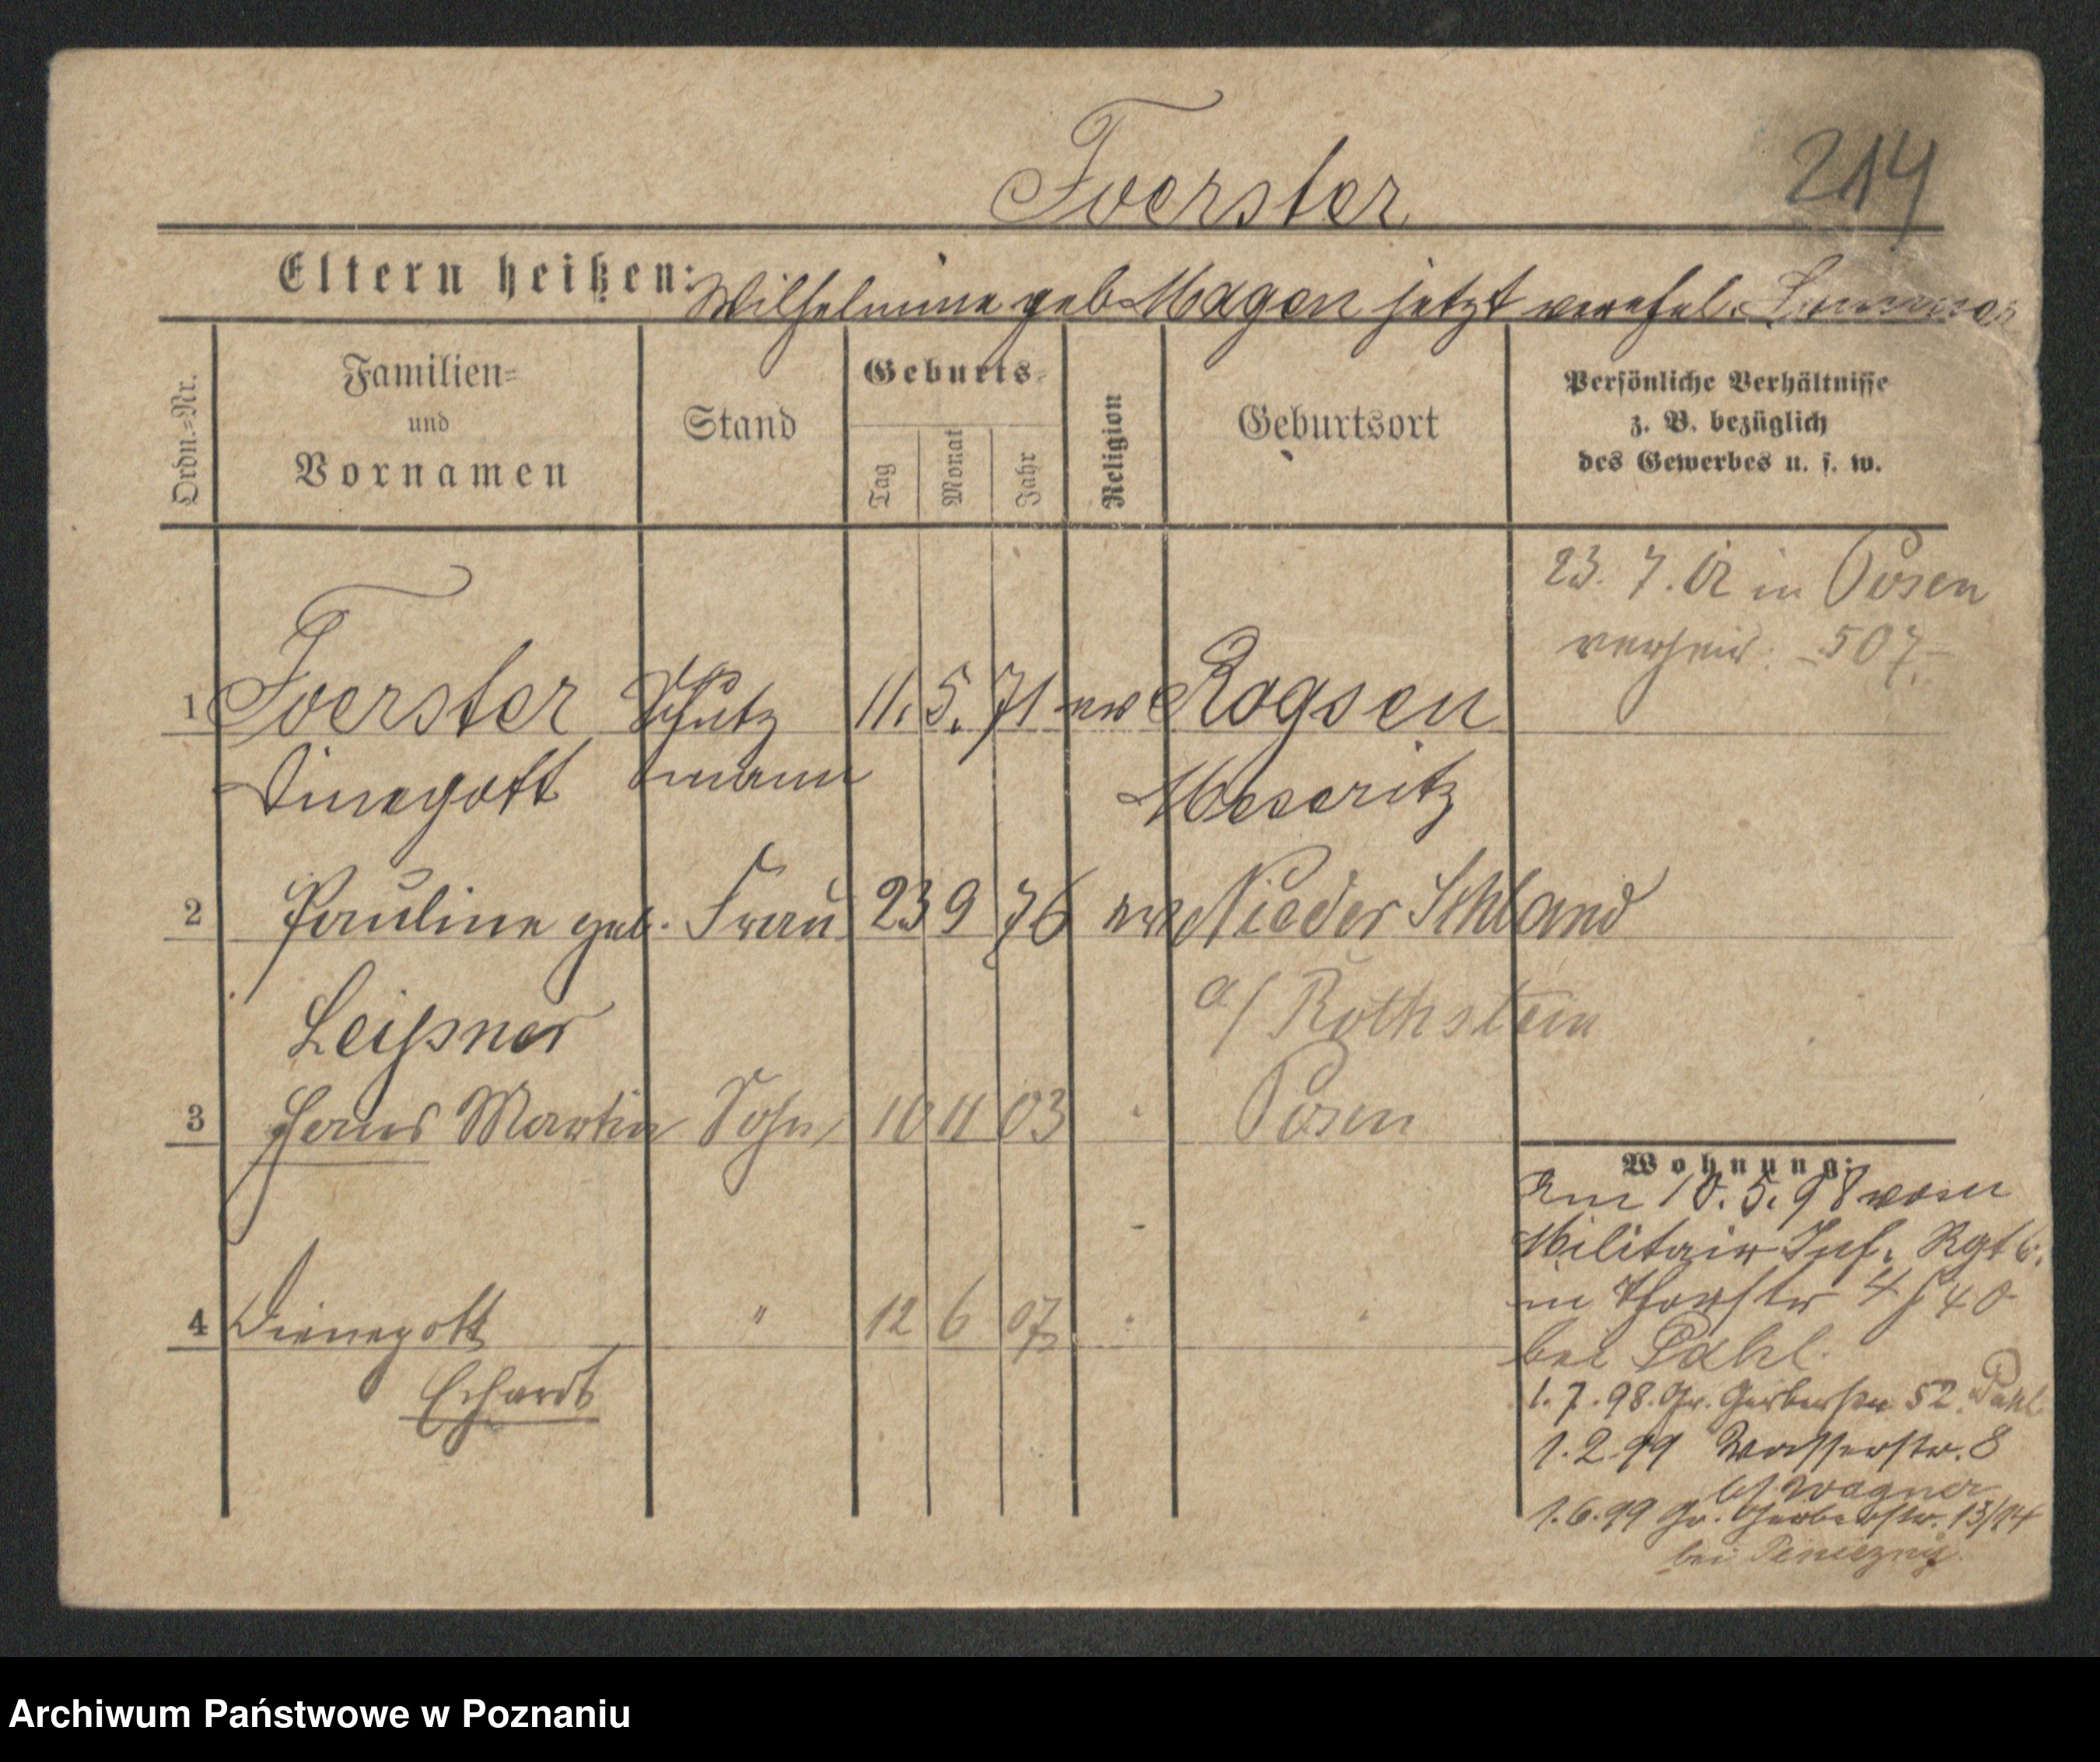 Foerster
214
Eltern heißen: Wilhelmine geb. Magen jetzt verehel.
Ordn.=Nr.
Familien=
und
Vornamen
Stand
Geburts=
Tag
Monat
Jahr
Religion
Geburtsort
Persönliche Verhältnisse
z. B. bezüglich
des Gewerbes u. s. w.
23. 7. 02 in Posen
verheir. 507.
1 Foerster Schutz 11. 5. 71 ev Rogsen
Dinegott mann Meseritz
2 Pauline geb. Frau 23 9 76 ev Nieder
a/ Rothstein
Leißner
3 Hans Martin Sohn 10 11 03 Posen
4 Dienegott " 12 6 07
Erhardt
Wohnung:
Am 10. 5. 98 vom
Militair Inf. Rgt 6.
in Thorstr 4 J 40
bei Pahl.
1. 7. 98. Gr. Gerberstr 52. Pahl
1. 2. 99 Wasserstr. 8
bei Wagner
1. 6. 99 Gr. Gerberstr. 13/14
bei
Archiwum Państwowe w Poznaniu